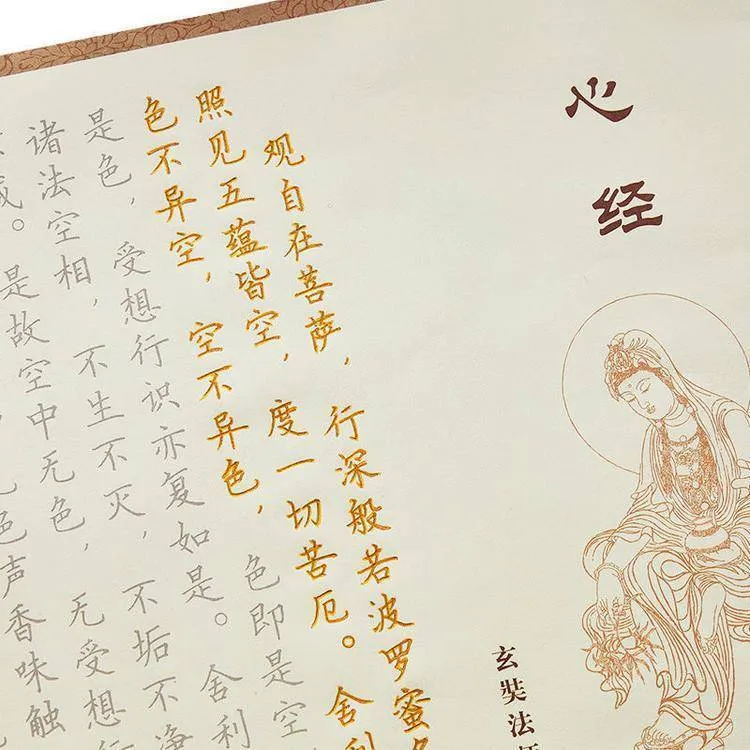 心经
玄奘法
观自在菩萨，行深般若波罗蜜
照见五蕴皆空，度一切苦厄。舍利
色不异空，空不异色，色即是空
是色，受想行识亦复如是。舍利
诸法空相，不生不灭，不垢不净
减。是故空中无色，无受想行
色声香味触